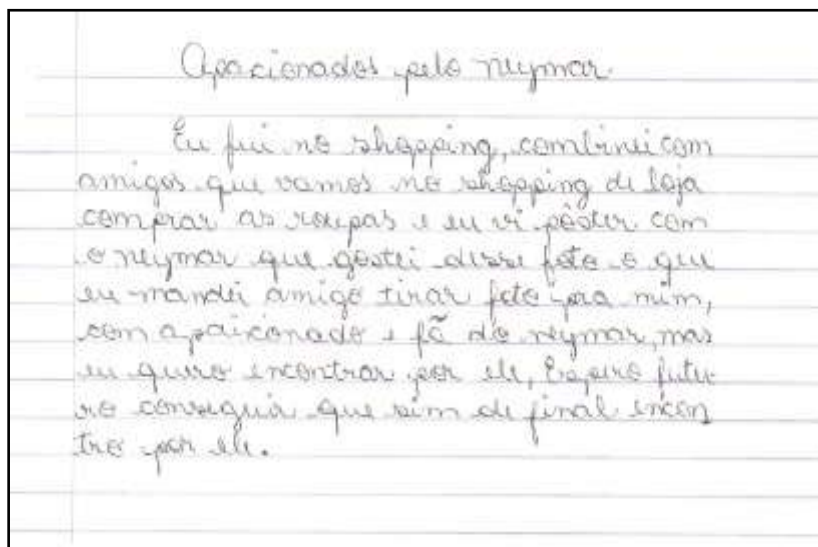 Apacionados pelo neymar.
Eu fui no shopping, combinei com
amigos que vamos no shopping de loja
comprar as roupas e eu vi pôster com
o neymar que gostei desse foto o que
eu mandei amigo tirar foto pra mim,
com apaixonado e fã do neymar, mas
eu quero encontrar por ele, Espero futu
ro conseguir que sim de final encon
tro por ele.